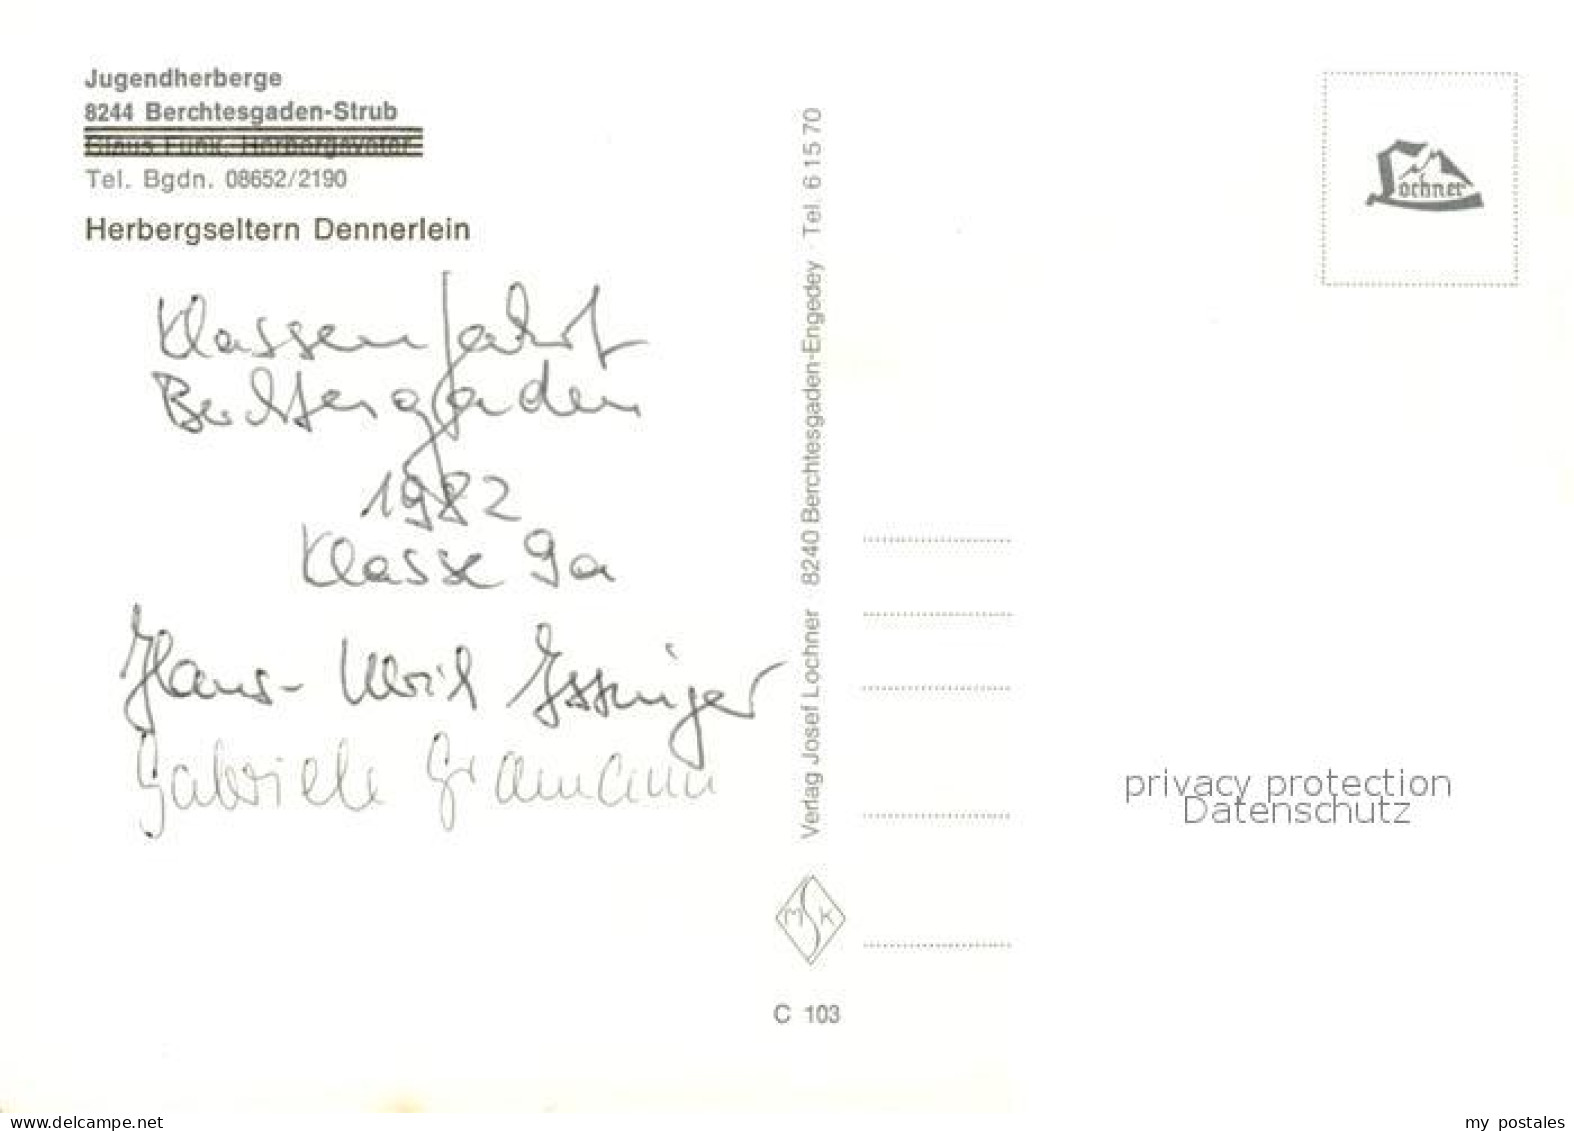 Jugendherberge
8244 Berchtesgaden-Strub
Claus Funk, Herbergsvater
Tel. Bgdn. 08652/2190
Herbergseltern Dennerlein
Klassenfahrt
Berchtesgaden
1982
Klasse 9a
Hans-Ulrich Essinger
Gabriele Gramann
Verlag Josef Lochner · 8240 Berchtesgaden-Engedey · Tel. 6 15 70
M S K
C 103
Lochner
privacy protection
Datenschutz
www.delcampe.net
my postales